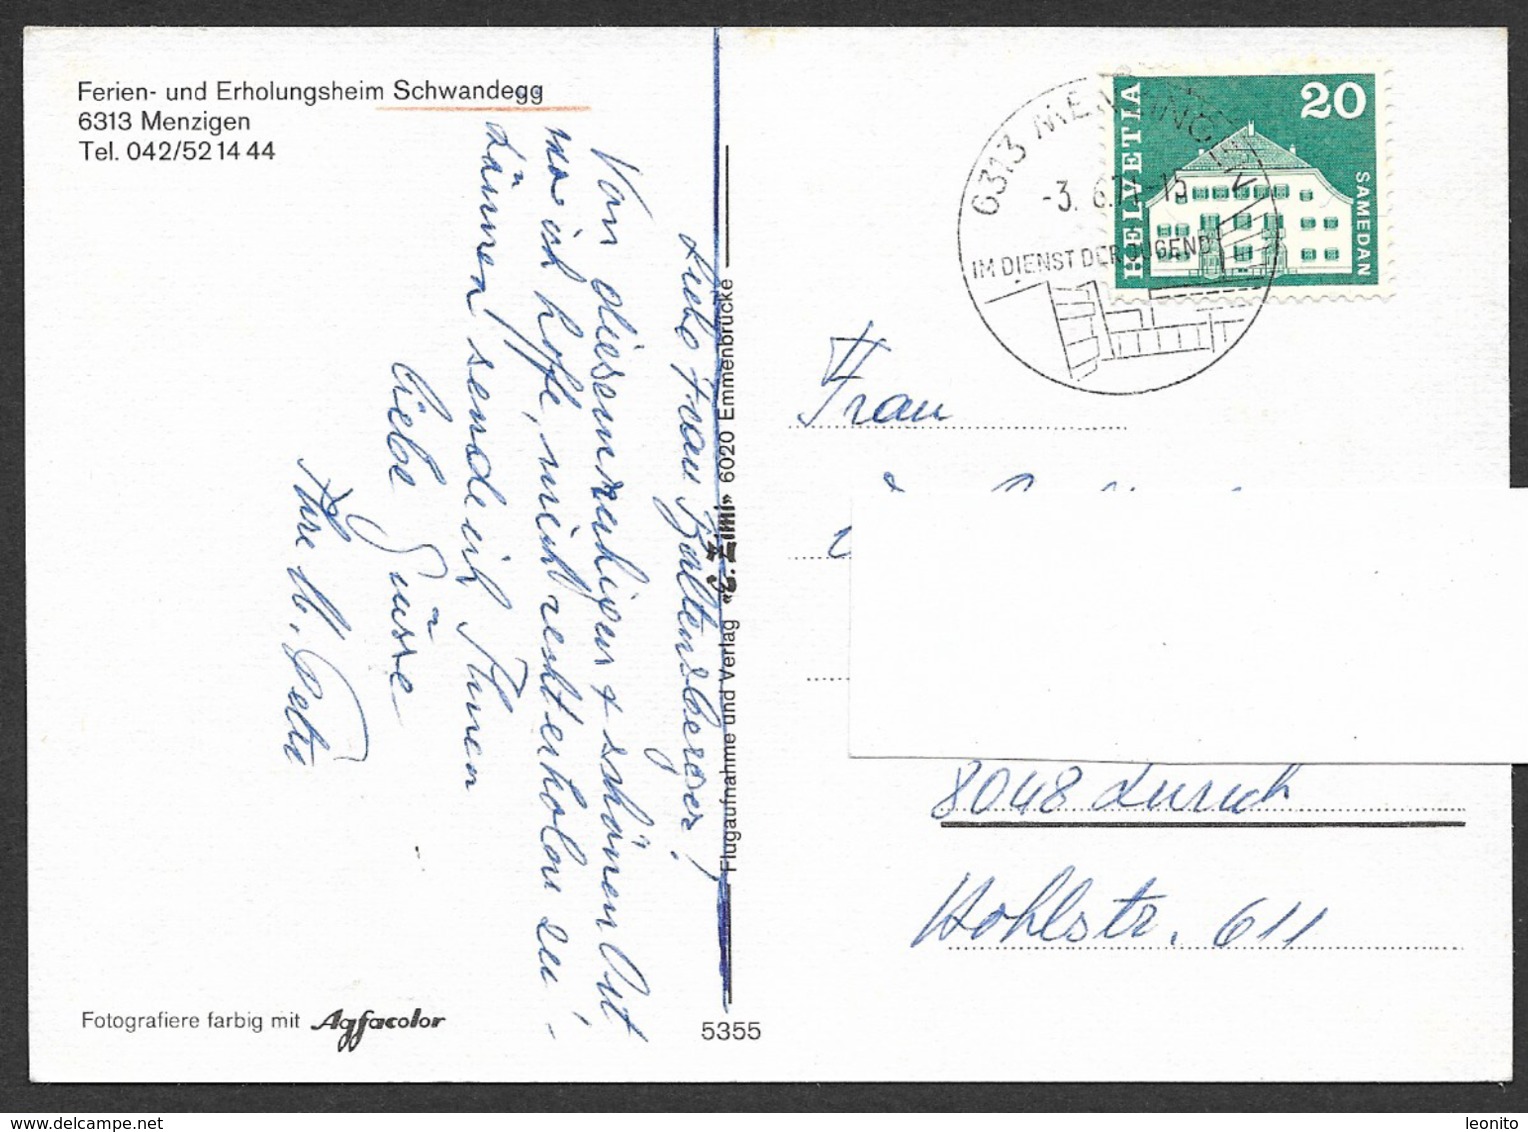 Ferien- und Erholungsheim Schwandegg
6313 Menzigen
Tel. 042/52 14 44
Liebe Frau Baltensberger!
Von diesem ruhigen + schönen Ort
wo ich hoffe, mich recht erholen zu
können sende ich Ihnen
liebe Grüsse
Ihre M.
Fotografiere farbig mit Agfacolor
Flugaufnahme und Verlag 6020 Emmenbrücke
5355
6313 MENZINGEN
-3. 6.71-15
IM DIENST DER JUGEND
HELVETIA
20
SAMEDAN
Frau
8048 Zürich
Hohlstr. 611
www.delcampe.net
leonito